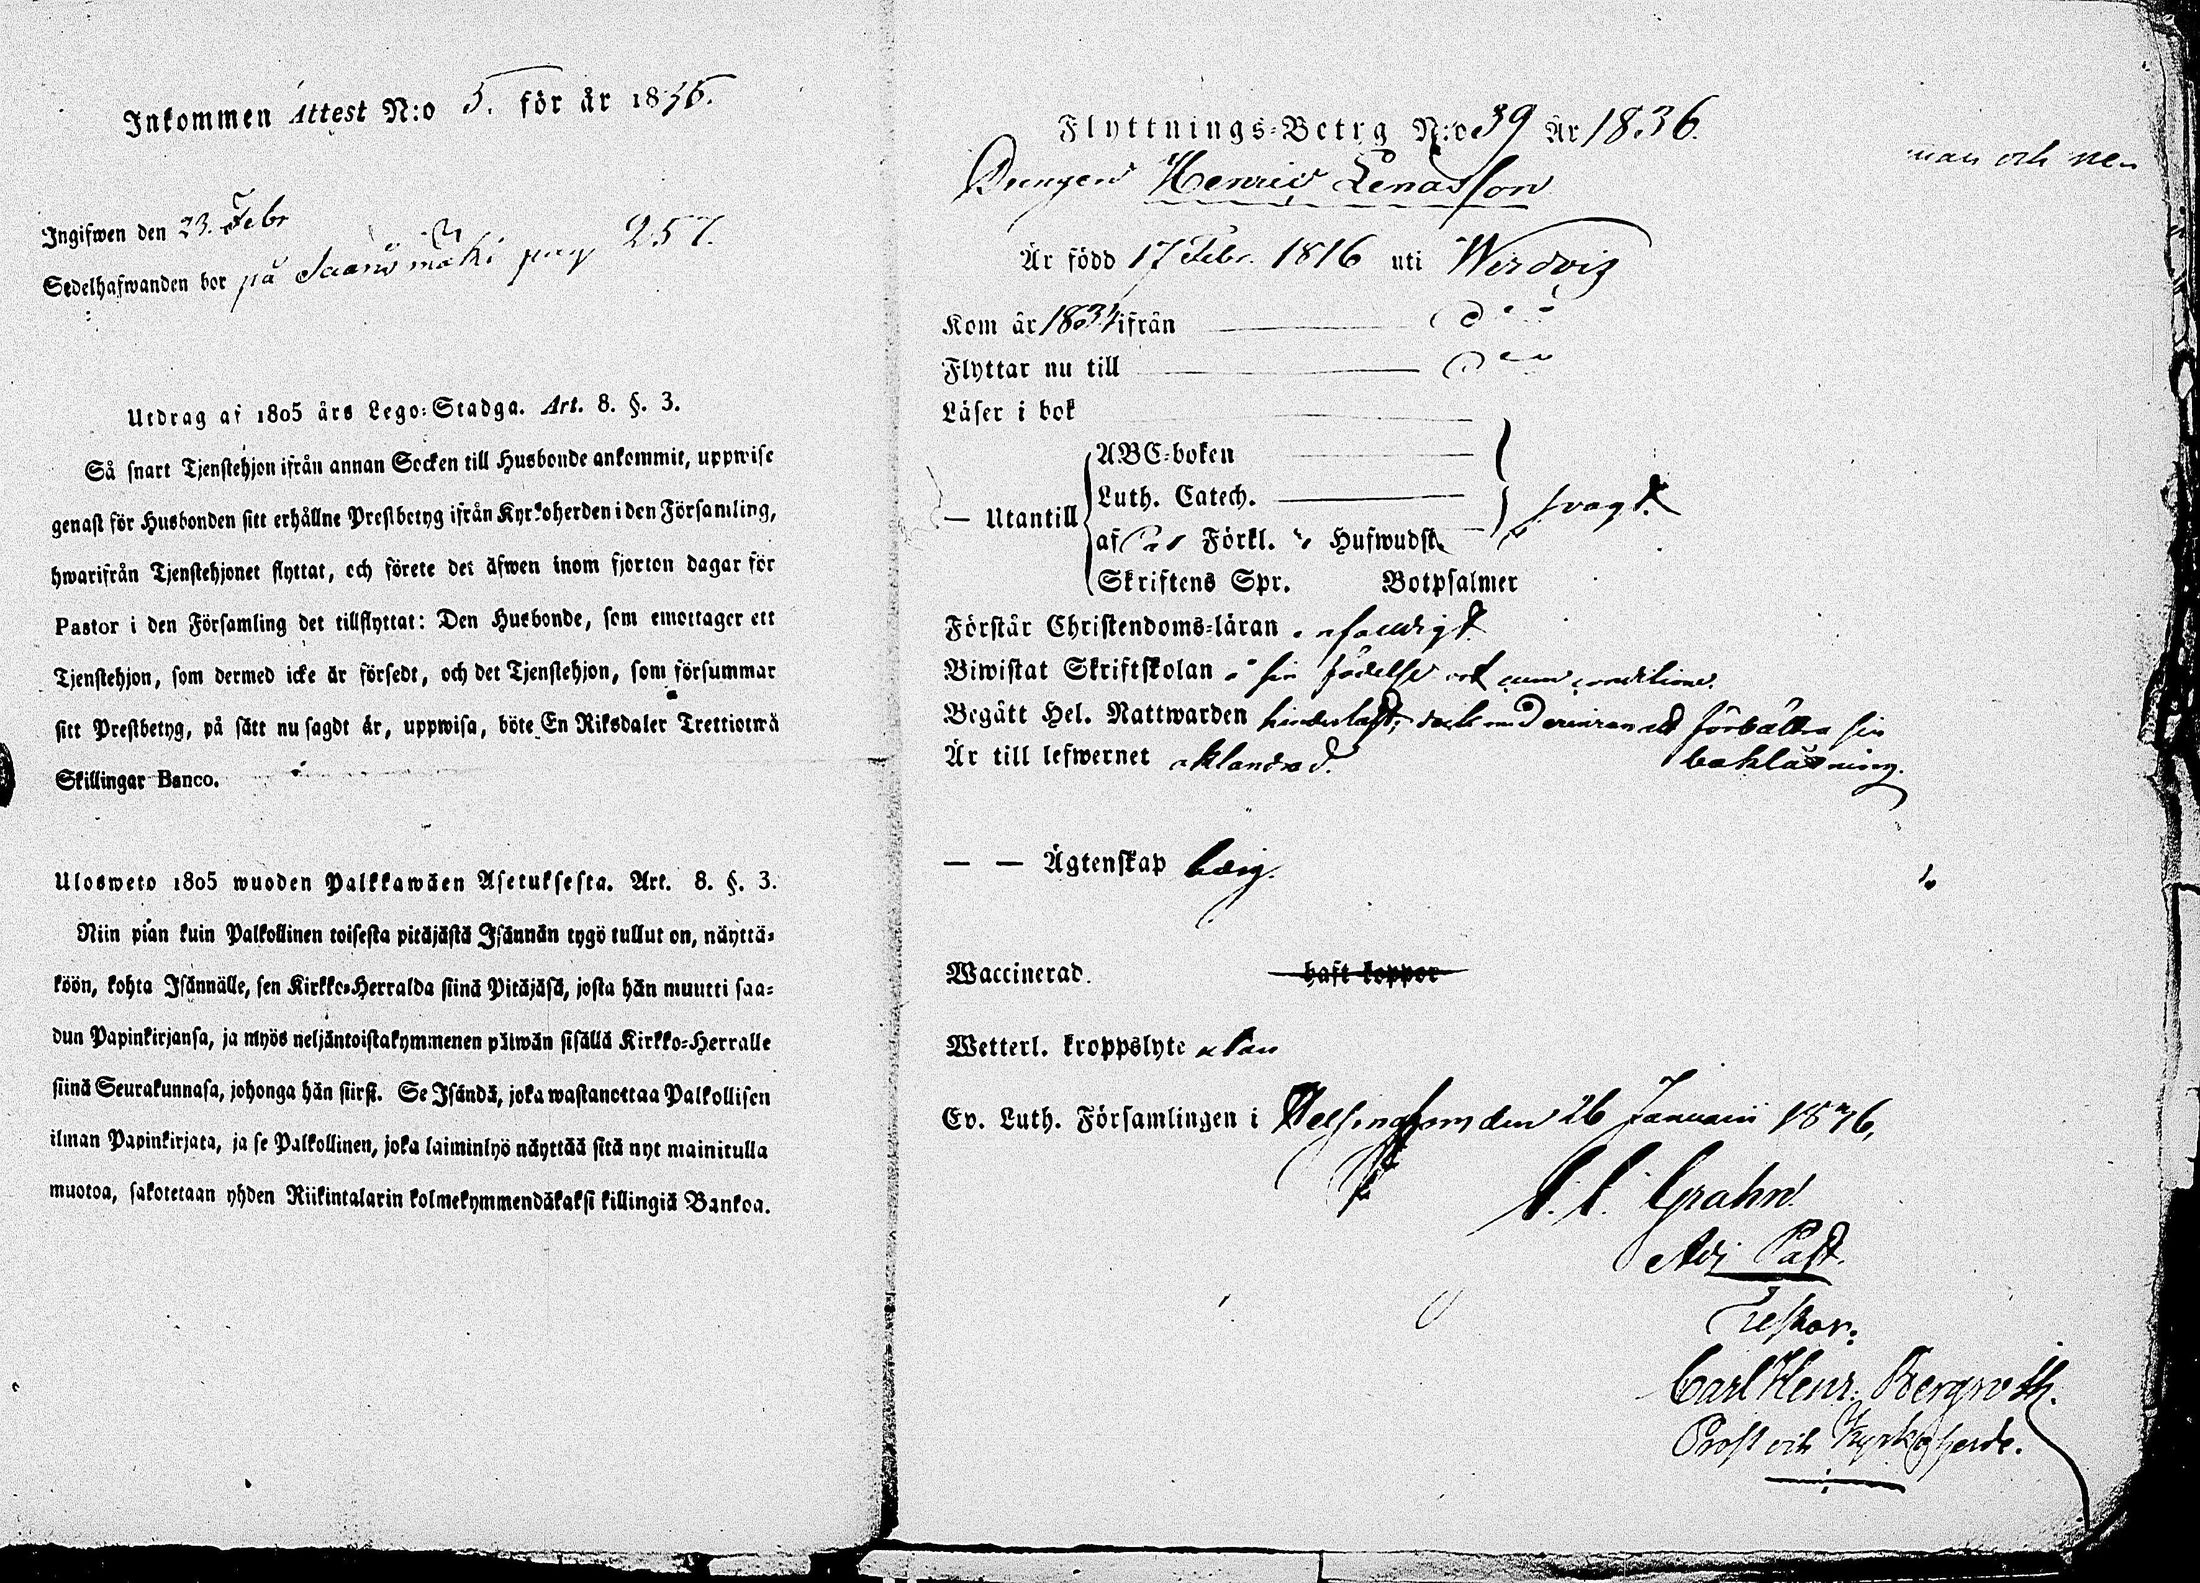 Inkommen Attest N:o 5. för år 1836.
Ingifwen den 23. Febr
Sedelhafwanden bor på pag 257.
Utdrag af 1805 års Lego-Stadga. Art. 8. §. 3.
Så snart Tjenstehjon ifrån annan Socken till Husbonde ankommit, uppwise
genast för Husbonden sitt erhållne Prestbetyg ifrån Kyrkoherden i den Församling,
hwarifrån Tjenstehjonet flyttat, och förete det äfwen inom fjorton dagar för
Pastor i den Församling det tillflyttat: Den Husbonde, som emottager ett
Tjenstehjon, som dermed icke är försedt, och det Tjenstehjon, som försummar
sitt Prestbetyg, på sätt nu sagdt är, uppwisa, böte En Riksdaler Trettiotwå
Skillingar Banco.
Ulosweto 1805 wuoden Palkkawäen Asetuksesta. Art. 8. §. 3.
Niin pian kuin Palkollinen toisesta pitäjästä Isännän tygö tullut on, näyttä-
köön, kohta Isännälle, sen Kirkko-Herralda siinä Pitäjäsä, josta hän muutti saa-
dun Papinkirjansa, ja myös neljäntoistakymmenen päiwän sisällä Kirkko-Herralle
siinä Seurakunnasa, johonga hän siirsi. Se Isändä, joka wastanottaa Palkollisen
ilman Papinkirjata, ja se Palkollinen, joka laiminlyö näyttää sitä nyt mainitulla
muotoa, sakotetaan yhden Riikintalarin kolmekymmendäkaksi killingiä Bankoa.
Flyttnings-Betyg N:o 39 År 1836.
Drengen Henric Lenasson
man och
Är född 17 Febr. 1816 uti
Kom år 1834 ifrån
Flyttar nu till
Läser i bok
ABC-boken
Luth. Catech.
— Utantill svagt.
af Förkl. Hufwudst.
Skriftens Spr. Botpsalmer
Förstår Christendoms-läran enfaldigt
Biwistat Skriftskolan i sin födelse ort cum conditione.
Begått Hel. Nattwarden dock med erinran att förbättra sin
bokläsning.
Är till lefwernet oklandrad.
— — Ägtenskap ledig.
Waccinerad. haft koppor
Wetterl. kroppslyte utan
Ev. Luth. Församlingen i Helsingfors den 26 Januarii 1836,
Grahn.
Adj Past.
Testor:
Carl Henr. Bergroth.
Prost och Kyrkoherde.